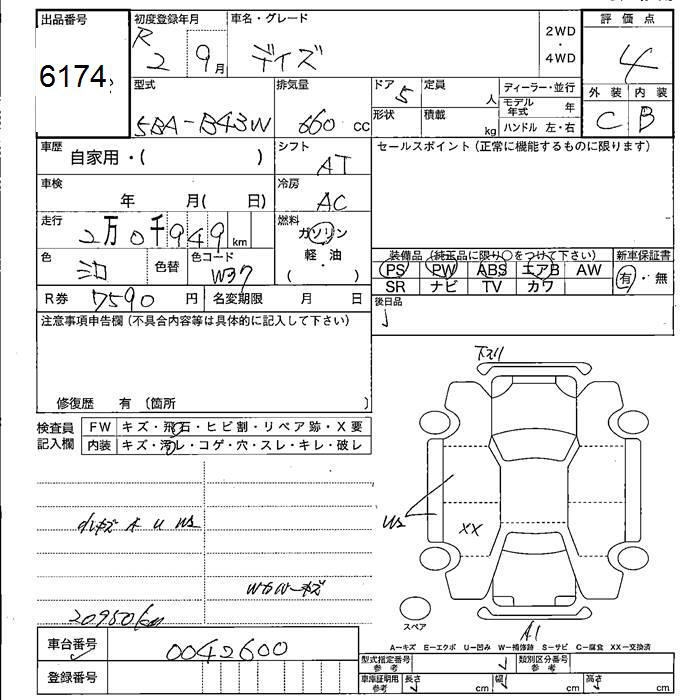 出品番号 初度登録年月 車名・グレード 評価点
6174
R 2 9月 デイズ 2WD・4WD 4
型式 排気量 ドア 定員 ディーラー・並行 外装 内装
5BA-B43W 660 cc 5 人 モデル年式 年 C B
形状 積載 kg ハンドル 左・右
車歴 シフト セールスポイント (正常に機能するものに限ります)
自家用・( ) AT
車検 冷房
年 月( 日) AC
走行 燃料
2万0千949km ガソリン
軽・油
( )
色 色替 色コード 装備品 (純正品に限り○をつけて下さい) 新車保証書
W37 PS PW ABS エアB AW 有・無
SR ナビ TV カワ
R券 7590円 名変期限 月 日 後日品
注意事項申告欄 (不具合内容等は具体的に記入して下さい)
修復歴 有 (箇所 )
検査員記入欄 FW キズ・飛石・ヒビ割・リペア跡・X要
内装 キズ・汚レ・コゲ・穴・スレ・キレ・破レ
下スリ
XX
20950km
スペア
A1
A-キズ E-エクボ U-凹み W-補修跡 S-サビ C-腐食 XX-交換済
車台番号 0042600
型式指定番号 参考 類別区分番号 参考
登録番号
車庫証明用 参考 長さ cm 幅 cm 高さ cm